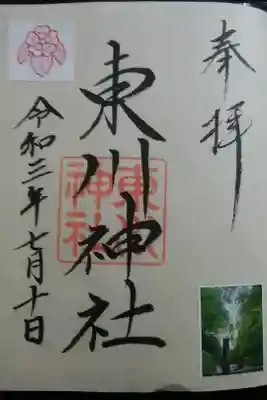 奉拝
東川神社
東川神社
令和三年七月十日